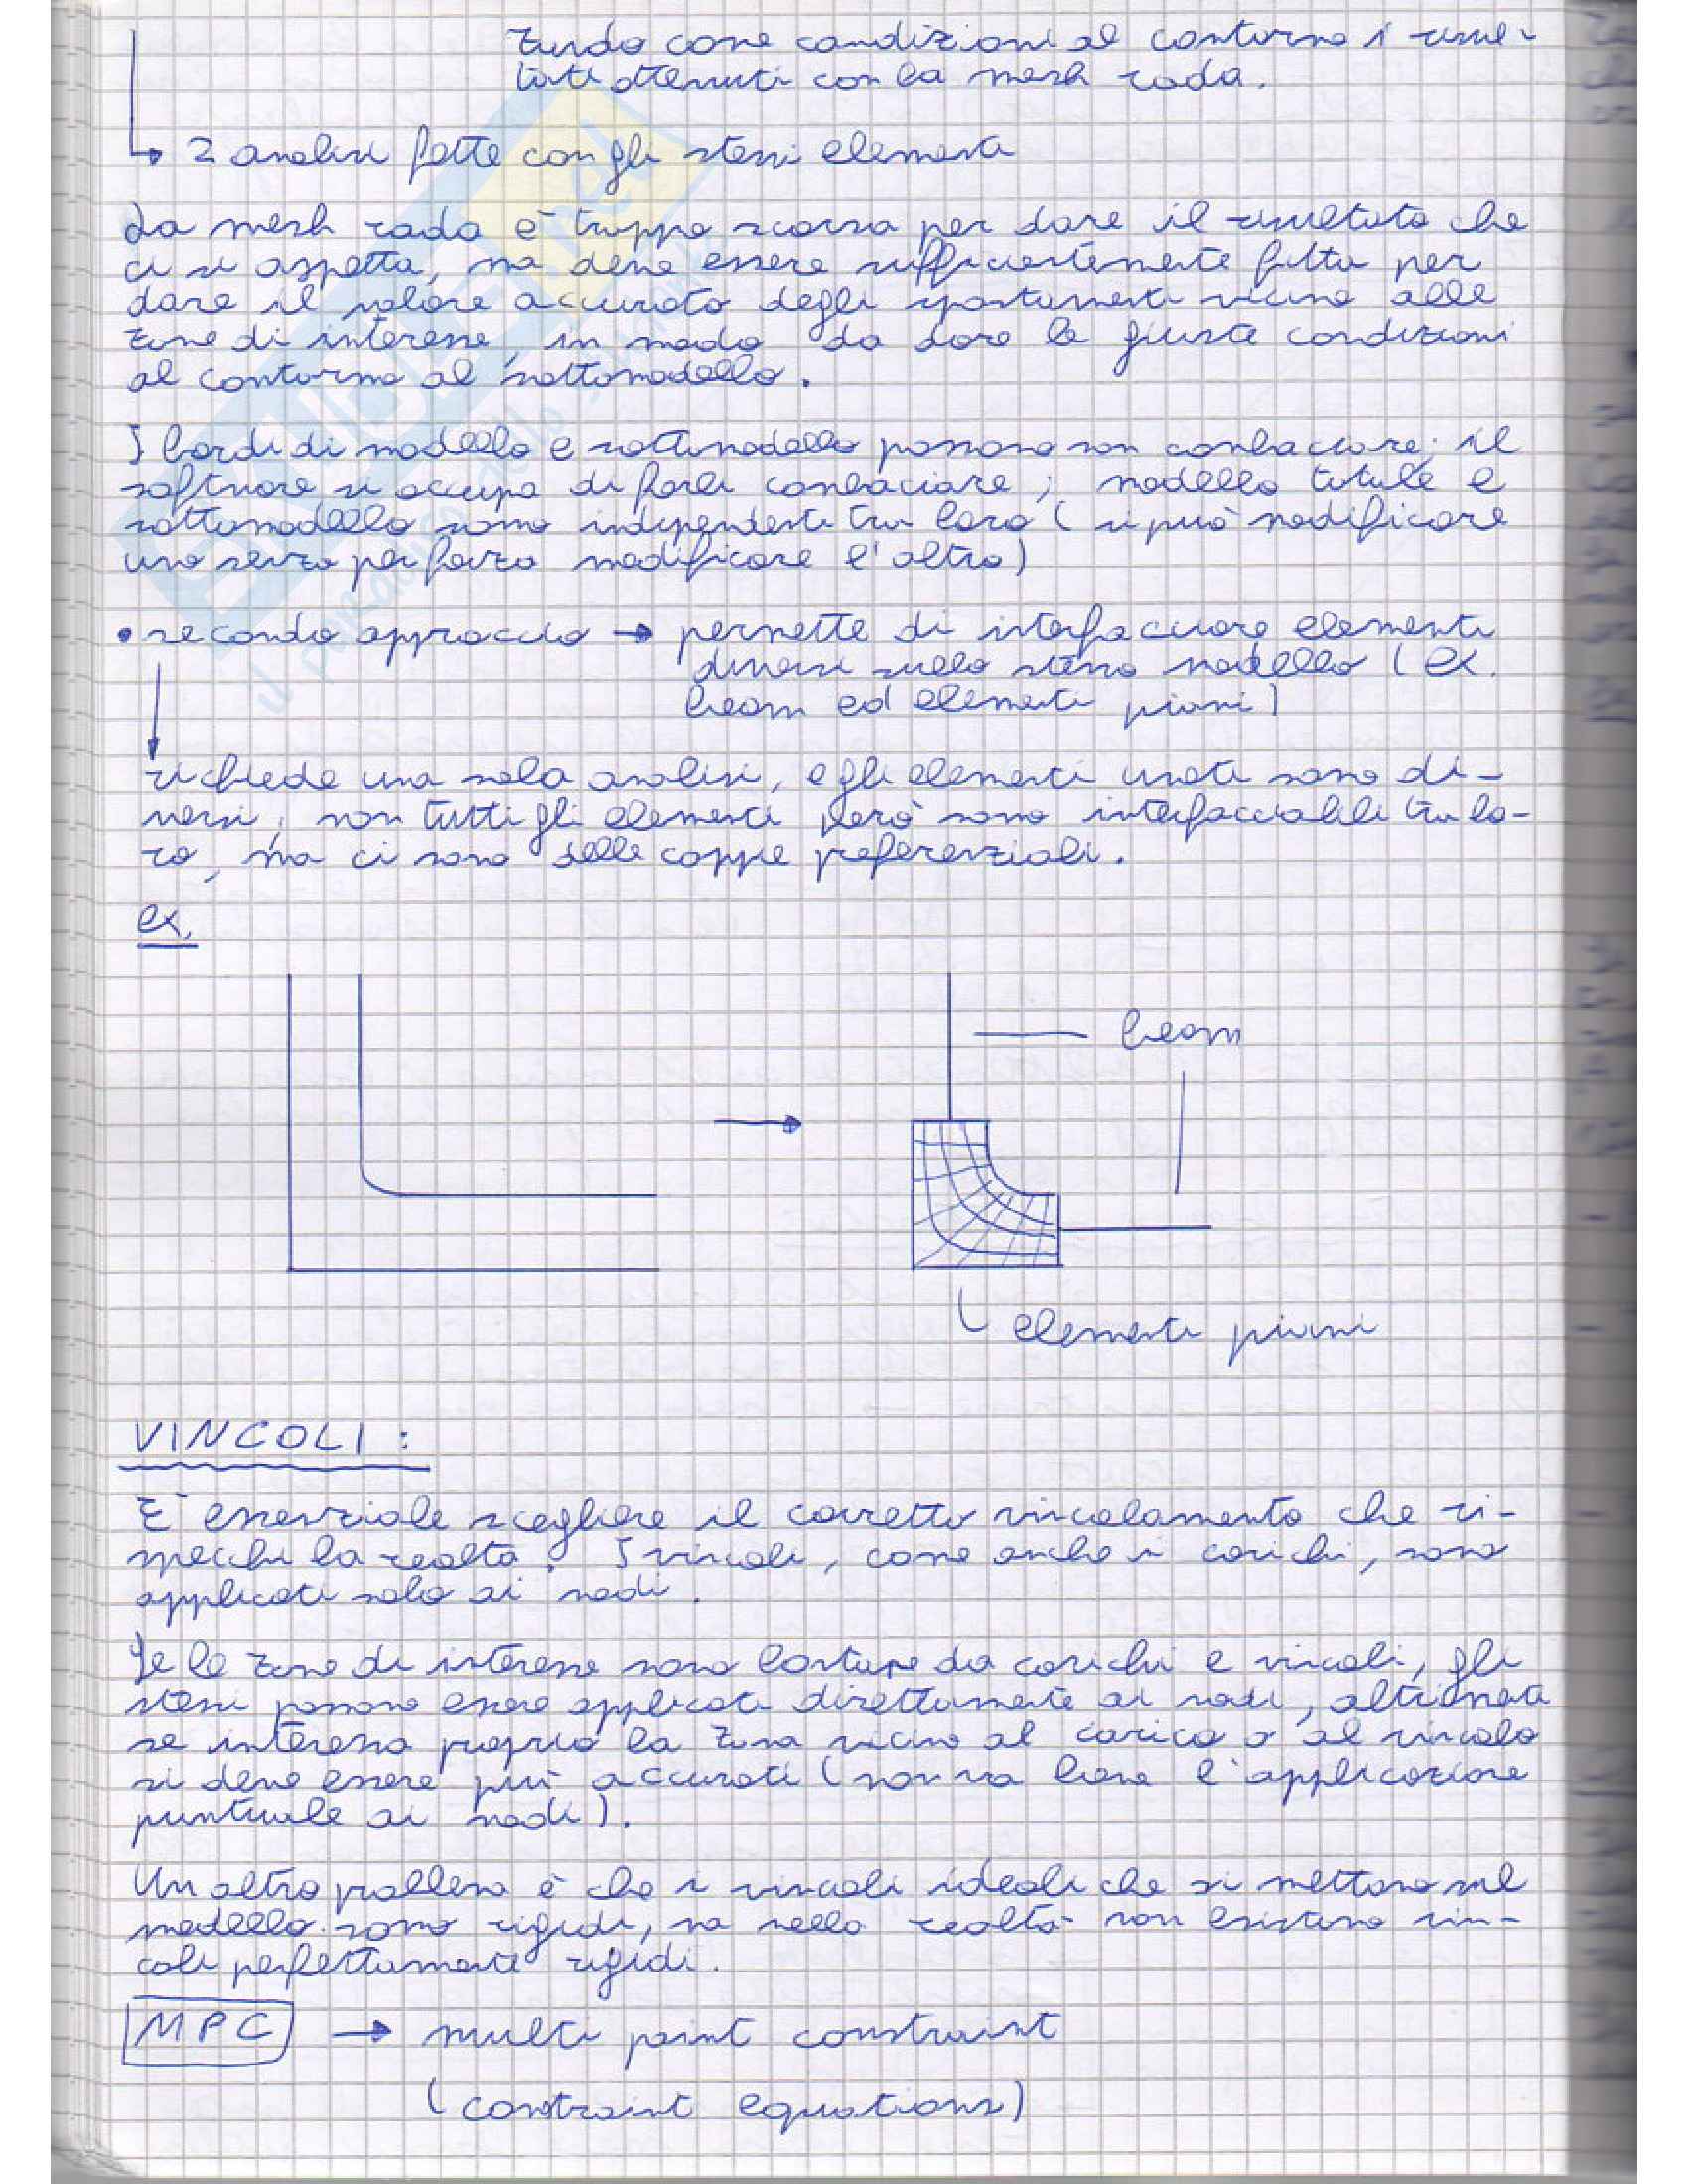 tendo come condizioni al contorno i risul-
tati ottenuti con la mesh rada.
2 analisi fatte con gli stessi elementi
La mesh rada è troppo scarsa per dare il risultato che
ci si aspetta, ma deve essere sufficientemente fitta per
dare il valore accurato degli spostamenti vicino alle
zone di interesse, in modo da dare le giuste condizioni
al contorno al sottomodello.
I bordi di modello e sottomodello possono non combaciare; il
software si occupa di farli combaciare; modello totale e
sottomodello sono indipendenti tra loro (si può modificare
uno senza per forza modificare l'altro)
• secondo approccio → permette di interfacciare elementi
diversi sullo stesso modello (ex.
beam ed elementi piani)
richiede una sola analisi, e gli elementi usati sono di-
versi; non tutti gli elementi però sono interfacciabili tra lo-
ro, ma ci sono delle coppie preferenziali.
ex.
beam
elementi piani
VINCOLI:
E' essenziale scegliere il corretto vincolamento che ri-
specchi la realtà. I vincoli, come anche i carichi, sono
applicati solo ai nodi.
Se le zone di interesse sono lontane da carichi e vincoli, gli
stessi possono essere applicati direttamente ai nodi, altrimenti
se interessa proprio la zona vicino al carico o al vincolo
si deve essere più accurati (non va bene l'applicazione
puntuale ai nodi).
Un altro problema è che i vincoli ideali che si mettono nel
modello sono rigidi, ma nella realtà non esistono vin-
coli perfettamente rigidi.
MPC → multi point constraint
(constraint equations)